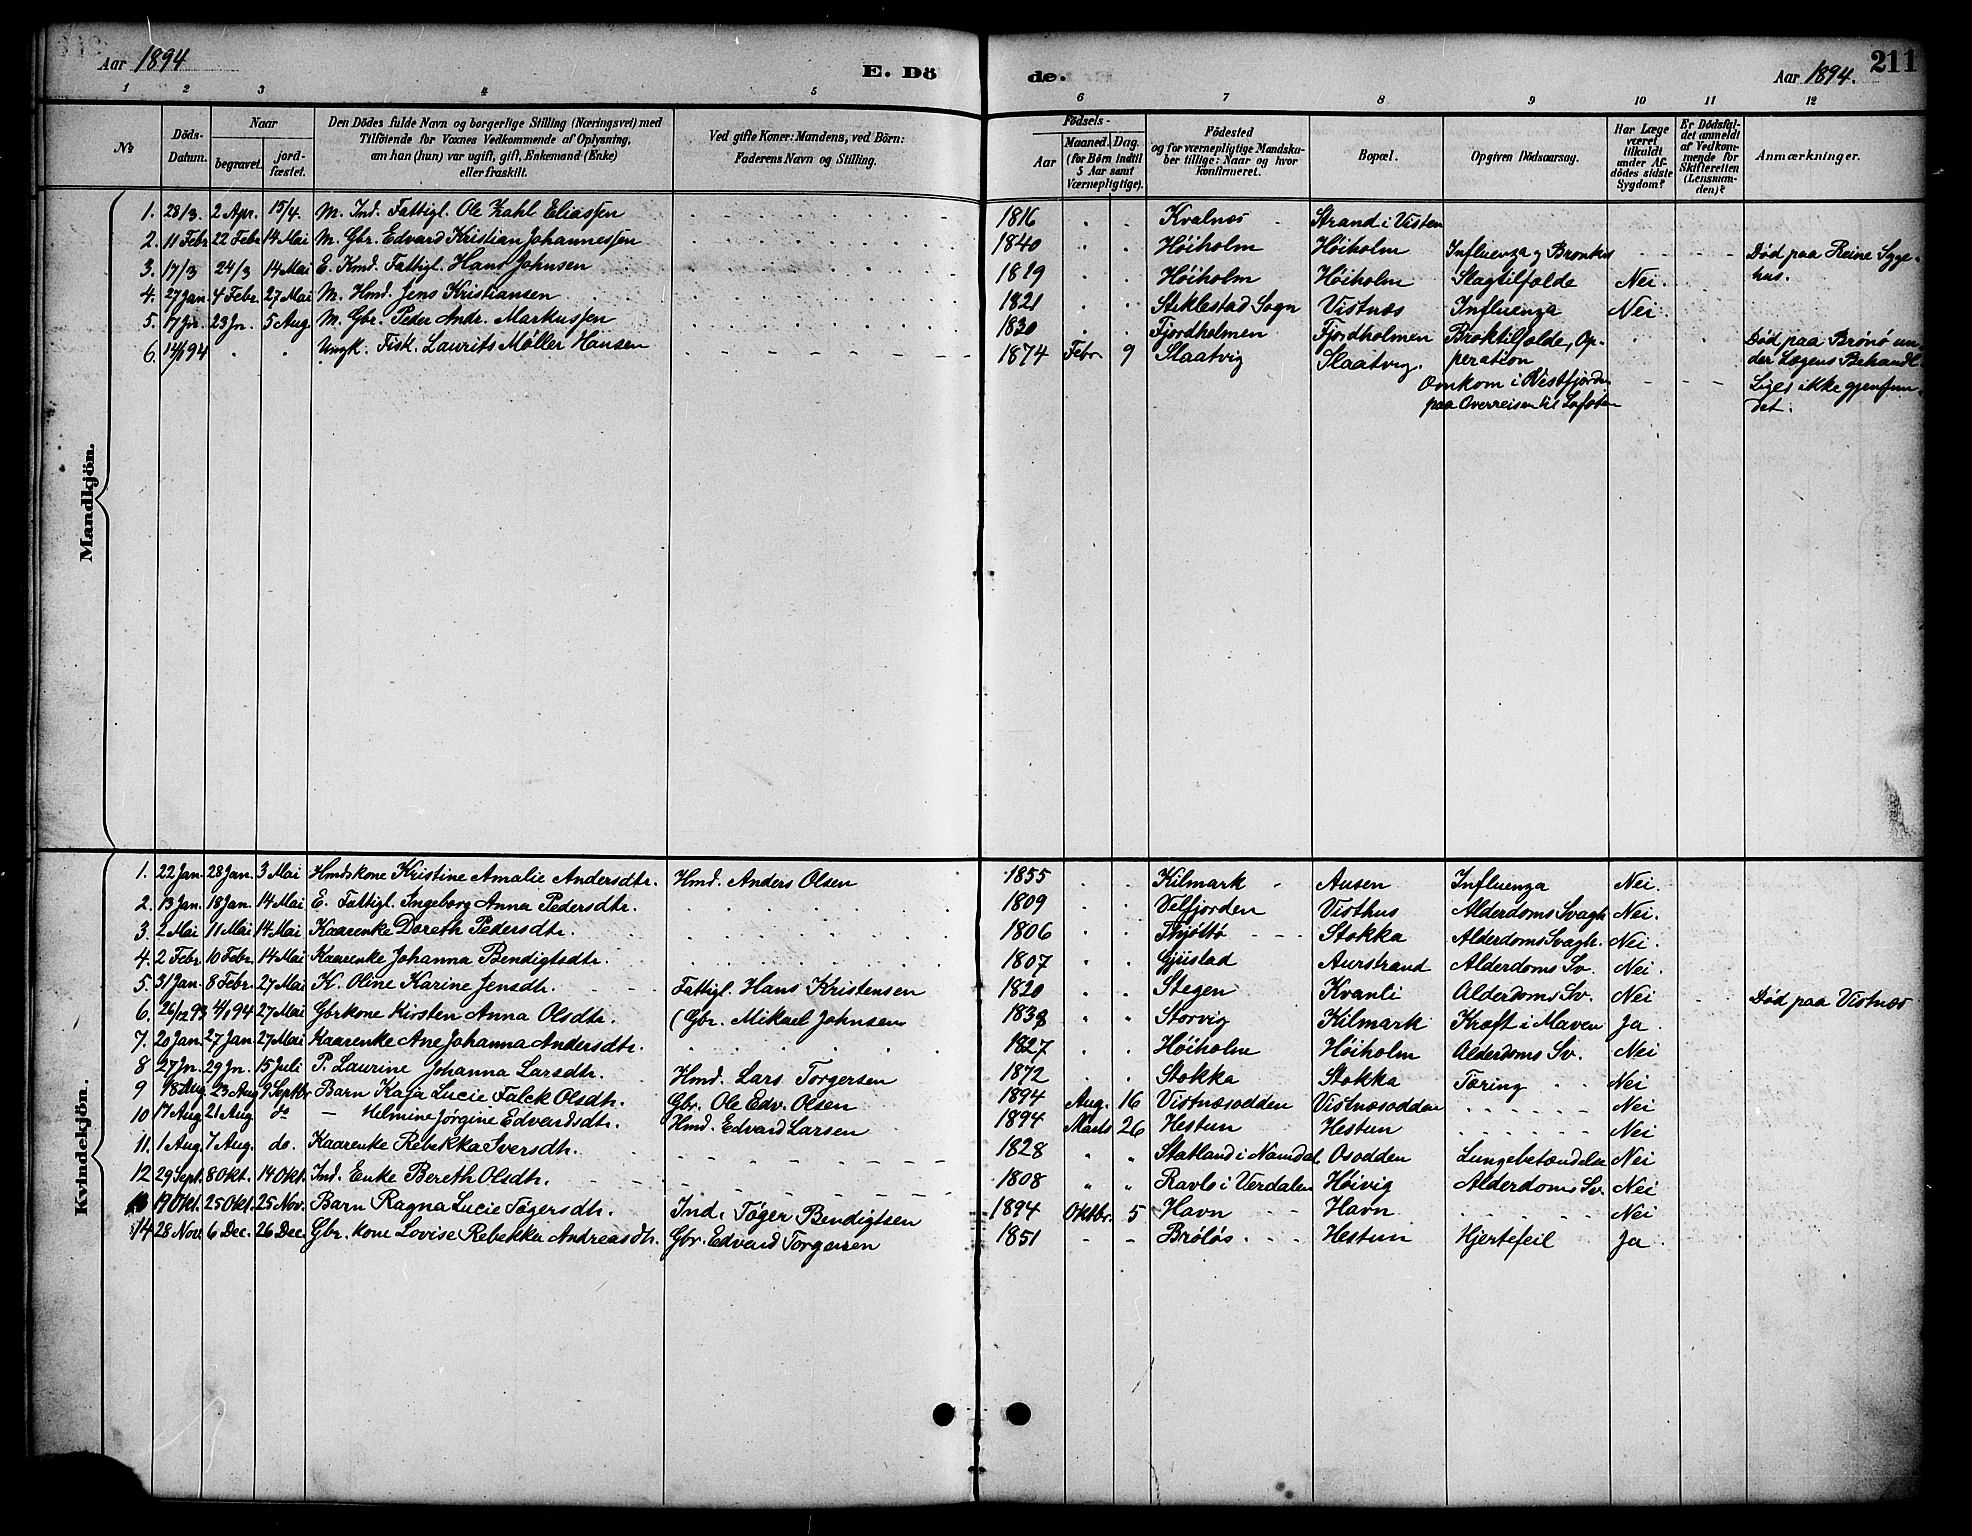 Aar 1894
E. Dö
de.
Aar 1894.
211
1 2 3 4 5 6 7 8 9 10 11 12
No
Döds-Datum.
Naar
begravet.
jord-fæstet.
Den Dödes fulde Navn og borgerlige Stilling (Næringsvei) med
Tilföiende for Voxnes Vedkommende af Oplysning,
om han (hun) var ugift, gift, Enkemand (Enke)
eller fraskilt.
Ved gifte Koner: Mandens, ved Börn:
Faderens Navn og Stilling.
Födsels-
Aar
Maaned. Dag.
(for Börn indtil
5 Aar samt
Værnepligtige).
Födested
og for værnepligtige Mandska-
ber tillige: Naar og hvor
konfirmeret.
Bopæl.
Opgiven Dödsaarsag.
Har Læge
været
tilkaldt
under Af-
dödes sidste
Sygdom?
Er Dödsfal-
det anmeldt
af Vedkom-
mende for
Skifteretten
(Lensman-
den)?
Anmærkninger.
Mandkjön.
1. 28/3. 2 Apr. 15/4. M. Ind. Fattigl. Ole Zahl Eliassen 1816 Kvalnæs Strand i Visten
2. 11 Febr 22 Febr 14 Mai M. Gbr. Edvard Kristian Johannessen 1840 Høiholm Høiholm Influenza og Bronkit Død paa Reine Syge-
hus.
3. 17/3 24/3 14 Mai E. Kmd. Fattigl. Hans Johnsen 1819 Høiholm Høiholm Slagtilfælde Nei.
4. 27 Jan. 4 Febr. 27 Mai M. Hmd. Jens Kristiansen 1821 Stiklestad Sogn Vistnæs Influenza Nei.
5. 17 Jr. 23 Jr. 5 Aug M. Gbr. Peder Andr. Markussen 1830 Fjordholmen Fjordholmen Broktilfælde, Op-
peration Død paa Brønø un-
der Lægens Behandl.
6. 14/1 94 Ungk. Fisk. Laurits Møller Hansen 1874 Febr. 9 Slaatvig Slaatvig.
Omkom i Vestfjorden
paa Overreisen til Lofoten
Liget ikke gjenfun-
det.
Kvindekjön.
1. 22 Jan. 28 Jan. 3 Mai Hmdskone Kristine Amalie Andersdtr. Hmd. Anders Olsen 1855 Kilmark Ausen Influenza Nei.
2. 13 Jan. 18 Jan. 14 Mai E. Fattigl. Ingeborg Anna Pedersdtr. 1809 Velfjorden Visthus Alderdoms Svagh. Nei.
3. 2 Mai 11 Mai 14 Mai Kaarenke Doreth Pedersdtr. 1806 Thjøttø Stokka Alderdoms Svagh. Nei.
4. 2 Febr. 10 Febr. 14 Mai Kaarenke Johanna Bendigtsdtr. 1807 Gjustad Aurstrand Alderdoms Sv. Nei.
5. 31 Jan. 8 Febr. 27 Mai K. Oline Karine Jensdtr. Fattigl. Hans Kristensen 1820 Stegen Kvanli Alderdoms Sv. Nei Død paa Vistnæs
6. 26/12 93 4/1 94 27 Mai Gbrkone Kirsten Anna Olsdtr. (Gbr. Mikael Johnsen 1838 Storvig Kilmark Kræft i Maven Ja.
7. 20 Jan. 27 Jan. 27 Mai Kaarenke Ane Johanna Andersdtr. 1827 Høiholm Høiholm Alderdoms Sv. Nei
8 27 Jn. 29 Jn. 15 Juli P. Laurine Johanna Larsdtr. Hmd. Lars Torgersen 1872 Stokka Stokka Tæring Nei
9 18 Aug 23 Aug 9 Septbr Barn Kaja Lucie Falck Olsdtr. Gbr. Ole Edv. Olsen 1894 Aug. 16 Vistnæsodden Vistnæsodden Nei
10 17 Aug 21 Aug do — Helmine Jørgine Edvardsdtr. Hmd. Edvard Larsen 1894 Marts 26 Hestun Hestun Nei
11. 1 Aug. 7 Aug. do. Kaarenke Rebekka Iversdtr. 1828 Statland i Namdal. Osodden Lungebetændelse Nei
12 29 Sept. 8 Okt. 14 Okt. Ind. Enke Bereth Olsdtr. 1808 Ravlo i Verdalen Høivig Alderdoms Sv. Nei
13 17 Okt. 25 Okt. 25 Nov. Barn Ragna Lucie Tøgersdtr. Ind. Tøger Bendigtsen 1894 Oktbr. 5 Havn Havn Nei
14 28 Nov. 6 Dec. 26 Dec. Gbr. kone Lovise Rebekka Andreasdtr. Gbr. Edvard Torgersen 1851 Brøløs Hestun Hjertefeil Ja